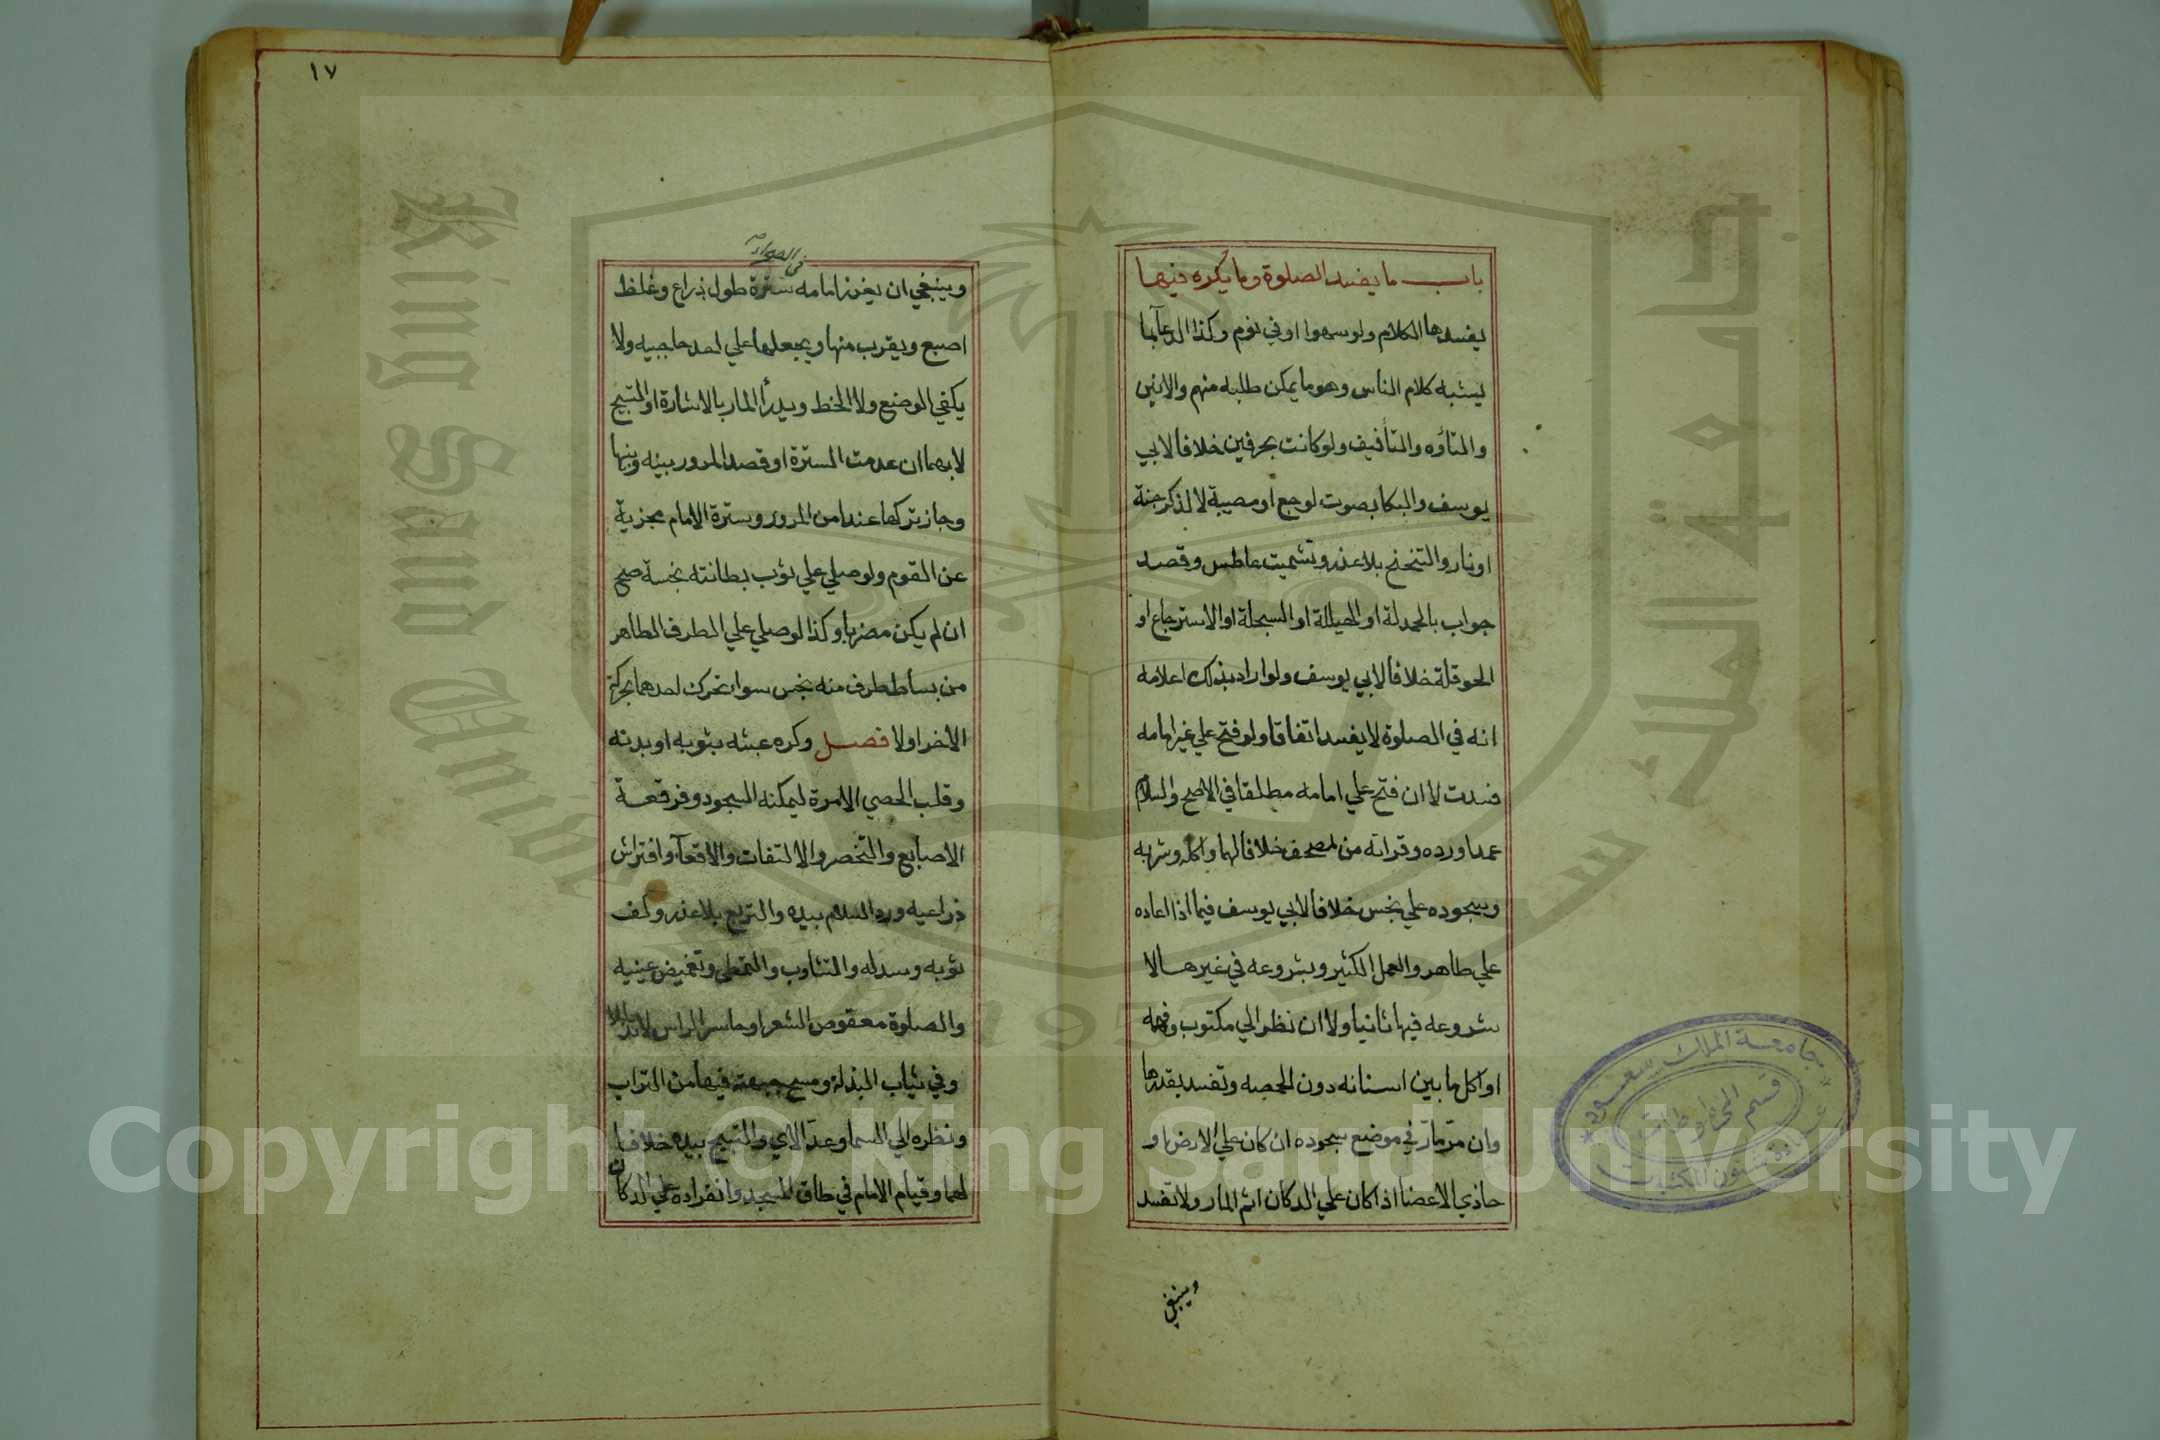 باب ما يفسد الصلوة وما يكره فيها
يفسدها الكلام ولو سهوا او في نوم وكذا الدعآ بما
يشبه كلام الناس وهو ما يمكن طلبه منهم والانين
والتأوه والتأفيف ولو كانت بحرفين خلافا لابي
يوسف والبكا بصوت لوجع او مصيبة لا لذكر جنة
او نار والتنحنح بلا عذر وتشميت عاطس وقصد
جواب بالحمدلة او الهيللة او السبحلة او الاسترجاع او
الحوقلة خلافا لابي يوسف ولو اراد بذلك اعلامه
انه في الصلوة لا يفسد اتفاقا ولو فتح علي غير امامه
فسدت لا ان فتح علي امامه مطلقا في الاصح والسلام
عمدا ورده وقراته من لمصحف خلافا لهما واكله وشربه
وسجوده علي نجس خلافا لابي يوسف فيما اذا اعاده
علي طاهر والعمل الكثير وبشروعه في غيرها لا
شروعه فيها ثانيا ولا ان نظر الي مكتوب وفهمه
او اكل ما بين اسنانه دون الحمصه وتفسد بقدرها
وان مر مار في موضع سجوده ان كان علي الارض او
حاذي الاعضا اذا كان علي الدكان اثم المار ولا تفسد
وينبغي
١٧
في الصحراء
وينبغي ان يغرز امامه سترة طول ذراع وغلظ
اصبع ويقرب منها ويجعلها علي احد حاجبيه ولا
يكفي الوضع ولا الخط ويدرأ المار بالاشارة او التسبيح
لا بهما ان عدمت السترة او قصد المرور بينه وبينها
وجاز تركها عند امن المرور وسترة الامام مجزية
عن القوم ولو صلي علي ثوب بطانته نجسة صح
ان لم يكن مضربا وكذا لو صلي علي الطرف الطاهر
من بساط طرف منه نجس سوا تحرك احدهما بحركة
الاخر او لا فصل وكره عبثه بثوبه او بدنه
وقلب الحصي الا مرة ليمكنه السجود وفرقعة
الاصابع والتخصر والالتفات والاقعآ وافتراش
ذراعيه ورد السلام بيده والتربع بلا عذر وكف
ثوبه وسدله والتثاوب والتمطي وتغميض عينيه
والصلوة معقوص الشعر او حاسر الراس لا تذللا
وفي ثياب البذلة ومسح جبهته فيها من التراب
ونظره الي السما وعد الاي والتسبيح بيده خلافا
لهما وقيام الامام في طاق المسجد وانفراده علي الدكان
جامعة الملك سعود
قسم المخطوطات
عمادة شئون المكتبات
King Saud University
جامعة الملك سعود
1957
Copyright © King Saud University